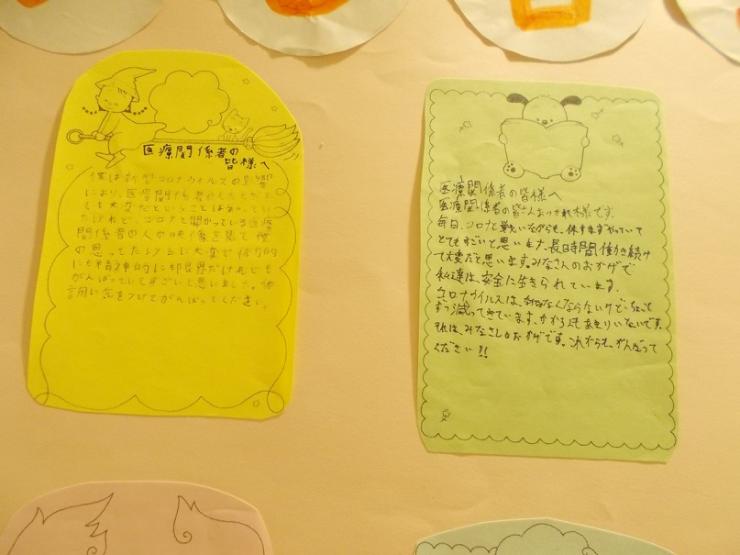 医療関係者の
皆様へ
僕は新型コロナウイルスの影響
により、医療関係者の人たちがとて
も大変だということはわかってい
たけれど、コロナと闘っている医療
関係者の人の映像を見て僕
の思ってたより大変で体力的
にも精神的にも限界だけれども
がんばっていてすごいと思いました。体
調に気をつけてがんばってください。
医療関係者の皆様へ
医療関係者の皆さんおつかれ様です。
毎日、コロナと戦いながらも、休まずやっていて
とてもすごいと思います。長時間働き続け
て大変だと思います。みなさんのおかげで
私達は、安全に生きられています。
コロナウイルスは、なくならないけど、ちょっと
ずつ減ってきています。かかる人もあまりいないです。
それは、みなさんのおかげです。これからも、がんばって
ください!!